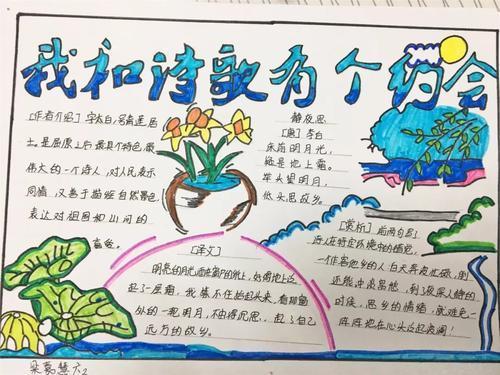 我和诗歌有个约会
[作者介绍] 字太白,号青莲居
士。是屈原之后最具个性特色、最
伟大的一个诗人,对人民表示
同情,又善于描绘自然景色
表达对祖国和山河的
静夜思
[唐] 李白
床前明月光,
疑是地上霜。
举头望明月,
低头思故乡。
[译文]
明亮的月光洒在窗户纸上,好像地上泛
起了一层霜。我禁不住抬起头来,看那窗
外的一轮明月,不由得沉思,想起了自己
远方的故乡。
[赏析] 后两句
在特定环境中的错觉。
一个客他乡的人白天奔波忙碌,倒
还能冲淡愁想,到了夜深人静的
时候,思乡的情绪,就难免一
阵阵地在心头泛起波澜!
六2